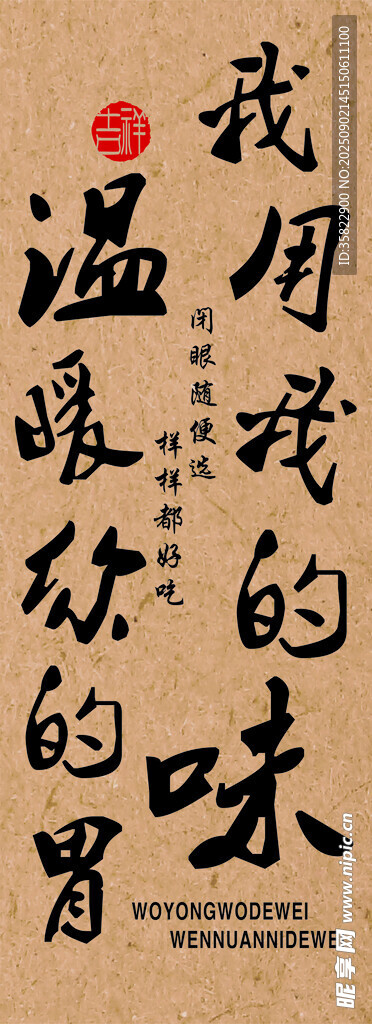 我用我的味
温暖你的胃
闭眼随便选
样样都好吃
吉祥
WOYONGWODEWEI
WENNUANNIDEWE
ID:35822900 NO:20250902145150611100
昵享网 www.nipic.cn